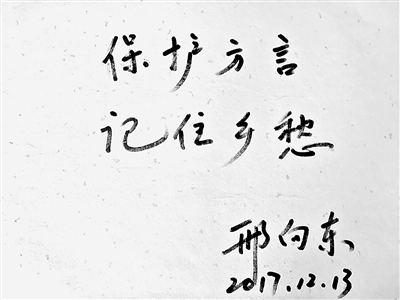 保护方言
记住乡愁
邢向东
2017.12.13